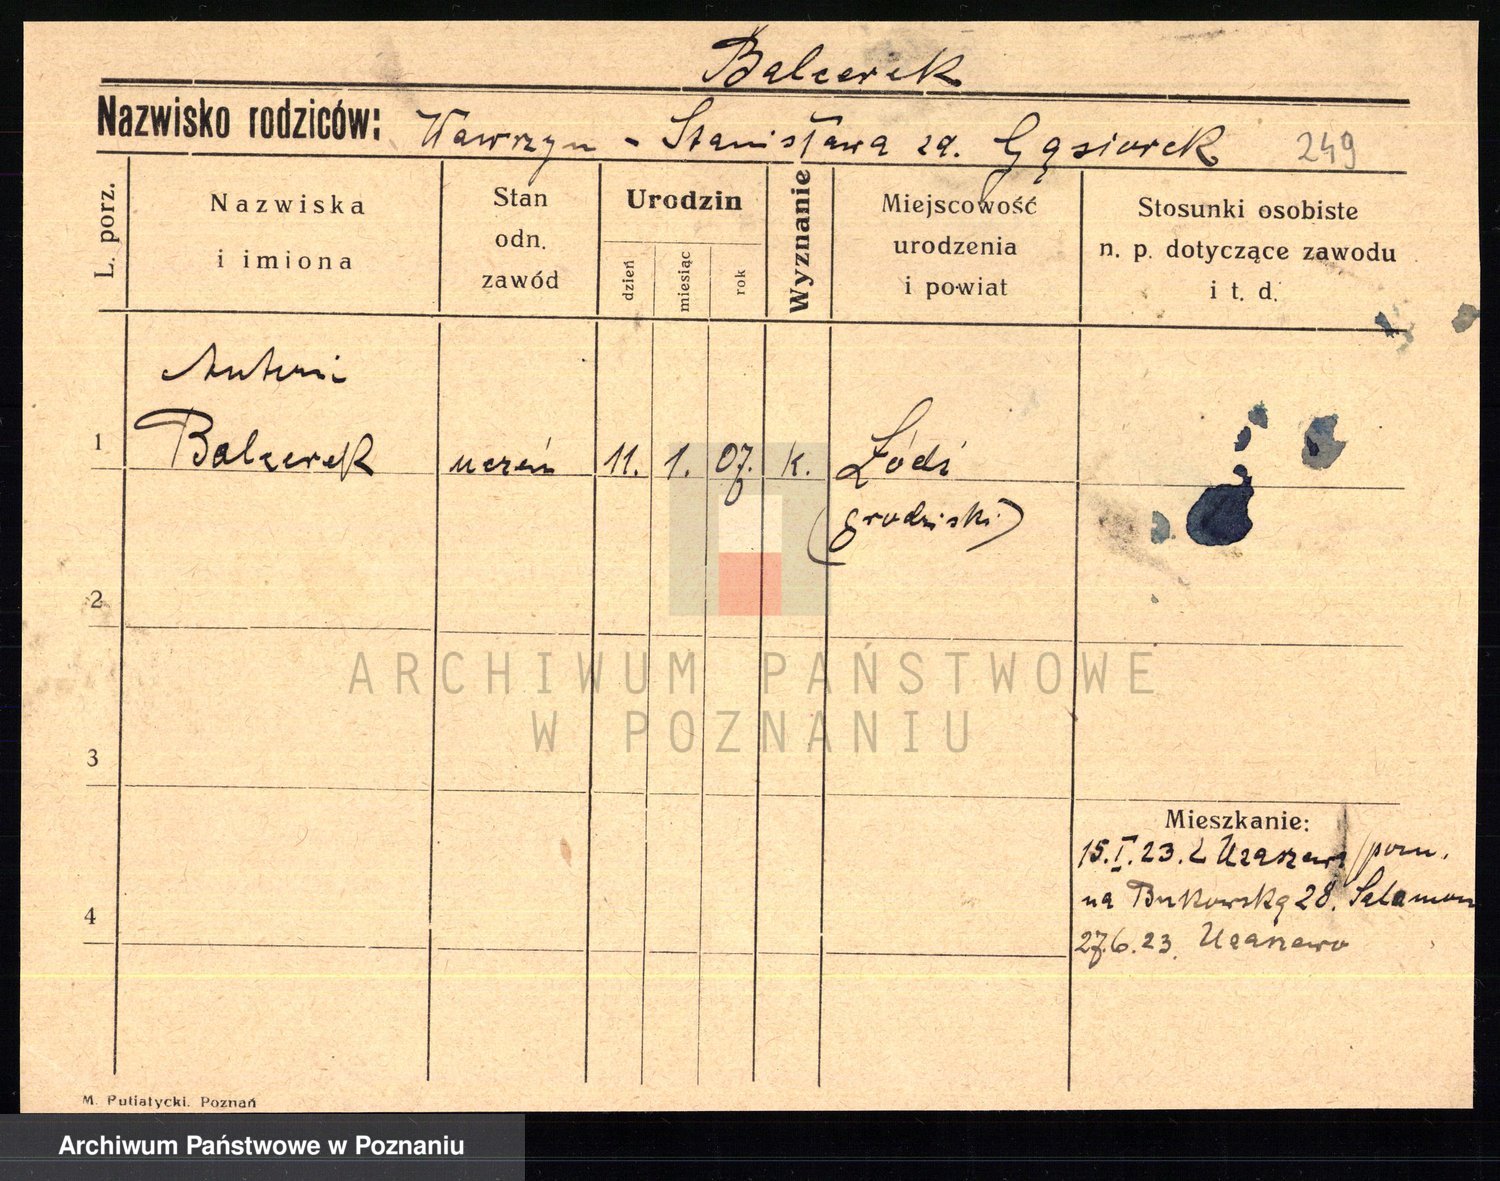 Balcerek
Nazwisko rodziców: Wawrzyn - Stanisława zd. Gąsiorek 249
L. porz.
Nazwiska
i imiona
Stan
odn.
zawód
Urodzin
dzień
miesiąc
rok
Wyznanie
Miejscowość
urodzenia
i powiat
Stosunki osobiste
n. p. dotyczące zawodu
i t. d.
Antoni
1 Balcerek uczeń 11. 1. 07. k. Łódź
(grodziski)
2
3
4
Mieszkanie:
15.I.23. z /pozn.
na Bukowską 28. Salamon
27.6.23.
M. Putiatycki. Poznań
ARCHIWUM PAŃSTWOWE
W POZNANIU
Archiwum Państwowe w Poznaniu